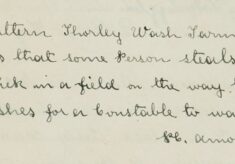 ttern Thorley Wash Farm
s that some Person steals
ick in a field on the way.
shes for a Constable to wa
PC. Arno